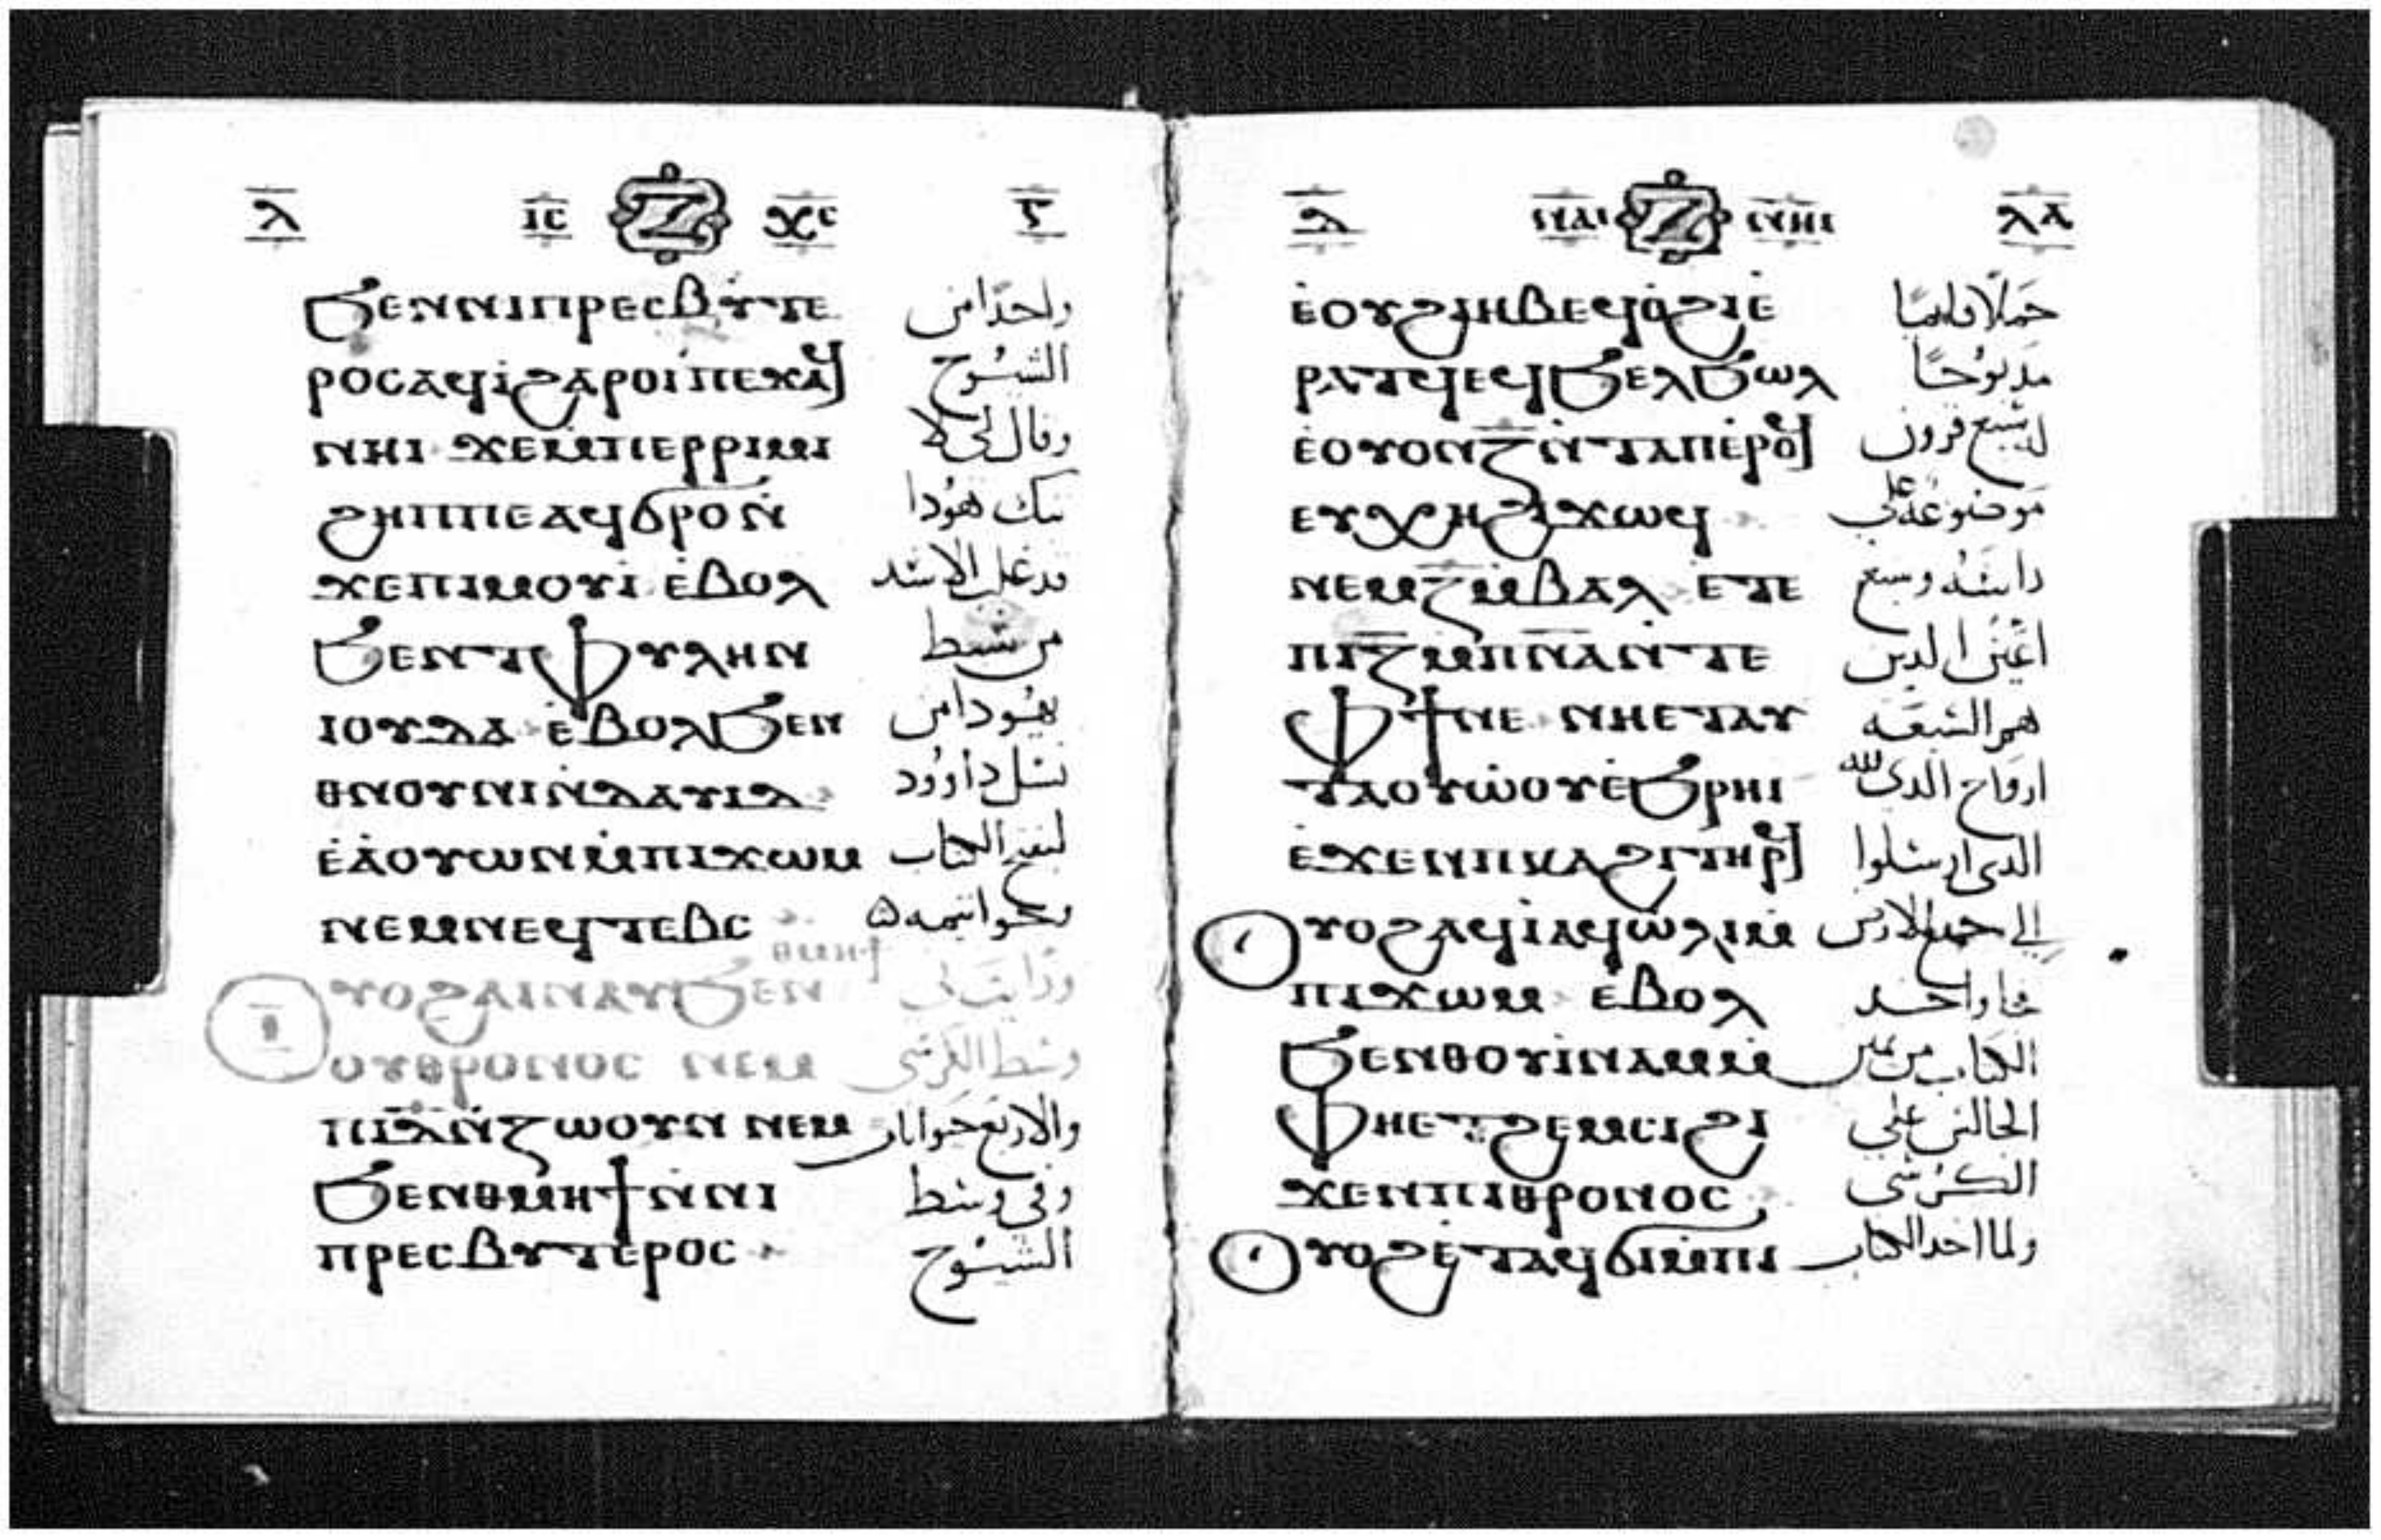 ⲗ̅ ⲓ̅ⲥ̅ Ⲍ ⲭ̅ⲥ̅ ⲋ̅
ϧⲉⲛⲛⲓⲡⲣⲉⲥⲃⲩⲧⲉ واحدا من
ⲣⲟⲥⲁϥⲓ̀ϩⲁⲣⲟⲓ ⲡⲉϫⲁϥ الشيوخ
ⲛⲏⲓ ϫⲉⲙⲡⲉⲣⲣⲓⲙⲓ وقال لى لا
ϩⲏⲡⲡⲉⲁϥϭⲣⲟⲛ̀ تبك هودا
ϫⲉⲡⲓⲙⲟⲩⲓ ⲉ̀ⲃⲟⲗ قد غلب الاسد
ϧⲉⲛⲧⲫⲩⲗⲏⲛ من سبط
ⲓⲟⲩⲇⲁ ⲉ̀ⲃⲟⲗϧⲉⲛ يهودا من
ⲑⲛⲟⲩⲛⲓⲛ̀ⲇⲁⲩⲓⲇ نسل داوود
ⲉ̀ⲁ̀ⲟⲩⲱⲛⲙ̀ⲡⲓϫⲱⲙ ليفتح الكتاب
ⲛⲉⲙⲛⲉϥⲧⲉⲃⲥ وخواتيمه
ⲑⲙⲏϯ
ⲩⲟϩⲁⲓⲛⲁⲩϧⲉⲛ ورايت فى
ⲟⲩⲑⲣⲟⲛⲟⲥ ⲛⲉⲙ وسط الكرسى
ⲡⲓⲇ̅ⲛ̀ⲍⲱⲟⲩⲛ ⲛⲉⲙ والاربع حيوانات
ϧⲉⲛⲑⲙⲏϯⲛ̀ⲛⲓ وفى وسط
ⲡⲣⲉⲥⲃⲩⲧⲉⲣⲟⲥ الشيوخ
ⲗ̅ ⲛⲁⲓ Ⲍ ⲛⲏⲓ ⲗⲁ̅
ⲉ̀ⲟⲩϩⲓⲏⲃⲉϥⲟ̀ϩⲓⲉ̀ حملا قايما
ⲣⲁⲧϥⲉϥϧⲉⲗϧⲱⲗ مدبوحا
ⲉ̀ⲟⲩⲟⲛⲍ̅ⲛ̀ⲧⲁⲡⲉ̀ⲣⲟϥ له سبع قرون
ⲉⲩⲭⲏϩⲓϫⲱϥ موضوعه على
ⲛⲉⲙⲍ̅ⲙ̀ⲃⲁⲗ ⲉⲧⲉ راسه وسبع
ⲡⲓⲍ̅ⲙ̀ⲡⲛ̅ⲁ̅ⲛ̀ⲧⲉ اعين الدين
ⲫϯⲛⲉ ⲛⲏⲉⲧⲁⲩ هم السبعه
ⲧⲁⲟⲩⲱ̀ⲟⲩⲉ̀ϧⲣⲏⲓ ارواح الدى لله
ⲉϫⲉⲛⲡⲕⲁϩⲓⲧⲏⲣϥ الدى ارسلوا
ⲩⲟϩⲁϥⲓ̀ⲁϥⲱ̀ⲗⲓⲙ̀ الى جميع الارض
ⲡⲓϫⲱⲙ ⲉ̀ⲃⲟⲗ فجا واخد
ϧⲉⲛⲑⲟⲩⲓ̀ⲛⲁⲙⲙ̀ الكتاب من يمين
ⲫⲏⲉⲧϩⲉⲙⲥⲓϩⲓ الجالس على
ϫⲉⲛⲡⲓⲑⲣⲟⲛⲟⲥ الكرسى
ⲩⲟϩⲉ̀ⲧⲁϥϭⲓⲙ̀ⲡⲓ ولما اخد الكتاب